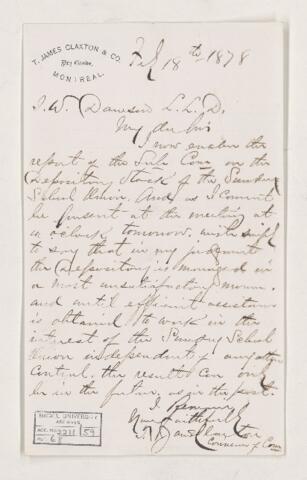 T. JAMES CLAXTON & CO.
MONTREAL.
Feb 18th 1878
J. W. Dawson L.L.D.
My dear Sir
I now enclose the
report of the Sub. Com. on the
Depository Stock of the Sunday
School Union. And as I cannot
be present at the meeting at
o'clock tomorrow, wish simply
to say that in my judgment
the Depository is managed in
a most unsatisfactory mann.
and until efficient assistance
is obtained to work in the
interest of the Sunday School
Union independently of any other
control, the results can only
be in the future, as in the past.
I remain
Yours faithfully
T. James Claxton
Convener of Com
McGILL UNIVERSITY
ARCHIVES
ACC. NO. 2211 59
REF. 68